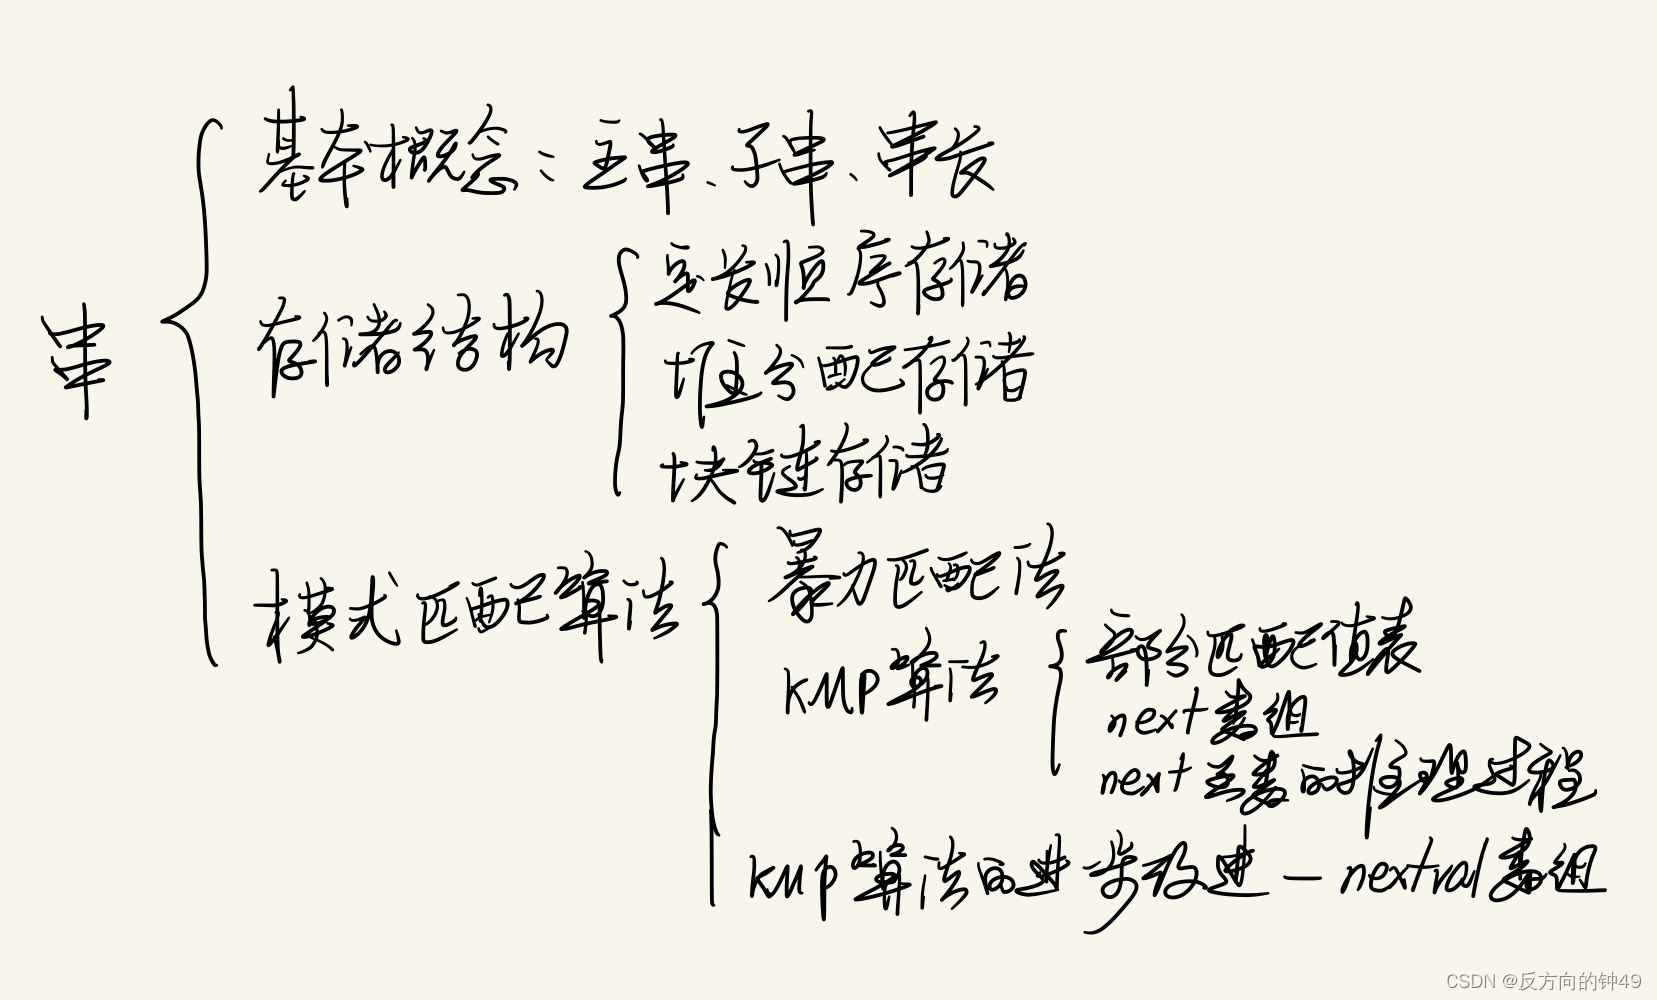 串
基本概念：主串、子串、串长
存储结构
定长顺序存储
堆分配存储
块链存储
模式匹配算法
暴力匹配法
KMP算法
部分匹配值表
next数组
next函数的推理过程
KMP算法的进一步改进—nextval数组
CSDN @反方向的钟49